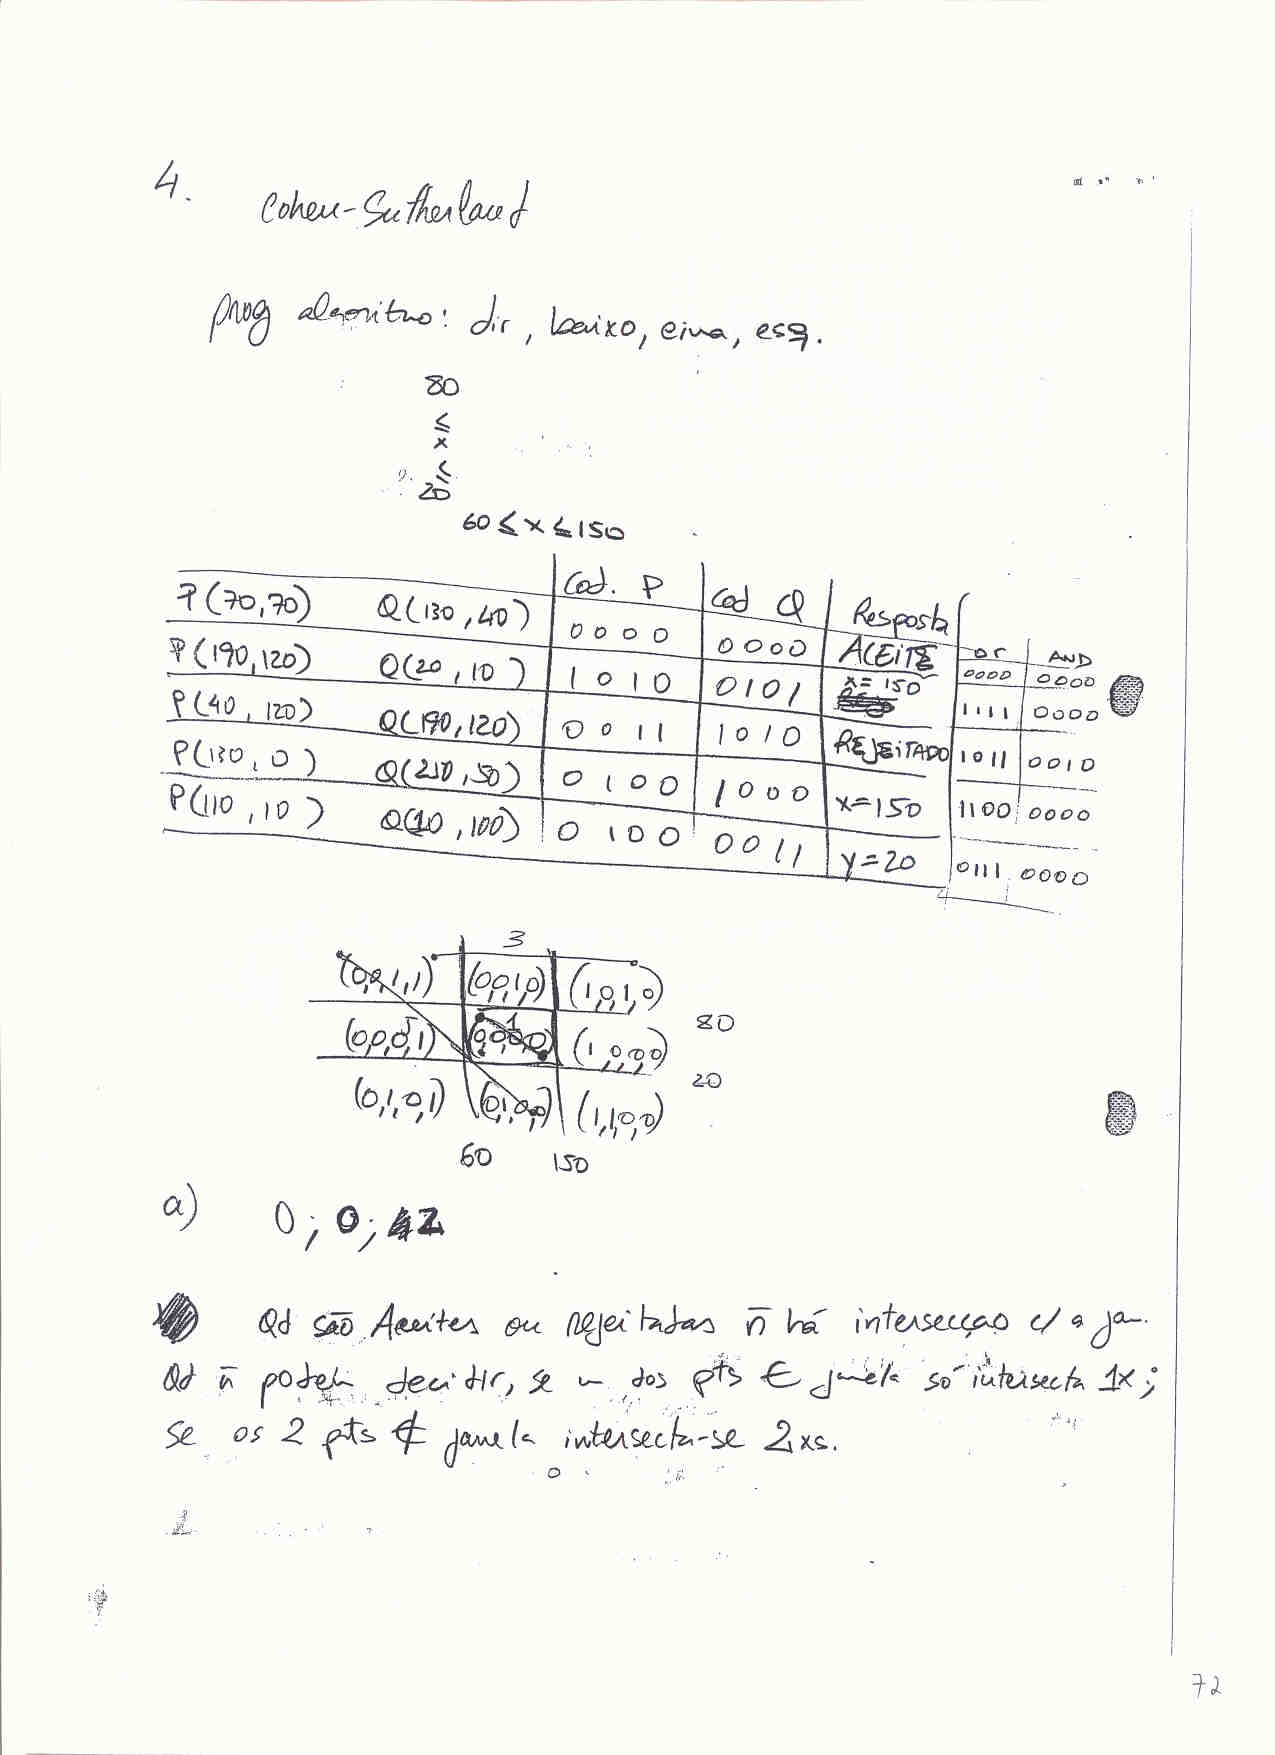 4.
Cohen-Sutherland
prog algoritmo: dir, baixo, cima, esq.
80
≤
x
≤
20
60 ≤ x ≤ 150
Cod. P Cod Q Resposta or AND
P(70,70) Q(130,40) 0000 0000 ACEITE 0000 0000
P(190,120) Q(20,10) 1010 0101 x=150 1111 0000
P(40,120) Q(190,120) 0011 1010 REJEITADO 1011 0010
P(130,0) Q(210,50) 0100 1000 x=150 1100 0000
P(110,10) Q(10,100) 0100 0011 y=20 0111 0000
3
(0,0,1,1) (0,0,1,0) (1,0,1,0)
80
(0,0,0,1) (0,0,0,0) (1,0,0,0)
20
(0,1,0,1) (0,1,0,0) (1,1,0,0)
60 150
a) 0; 0; 2
Qd são Aceites ou rejeitadas ñ há intersecçao c/ a jan.
Qd ñ podem decidir, se um dos pts ∈ janela só intersecta 1x;
se os 2 pts ∉ janela intersecta-se 2xs.
72